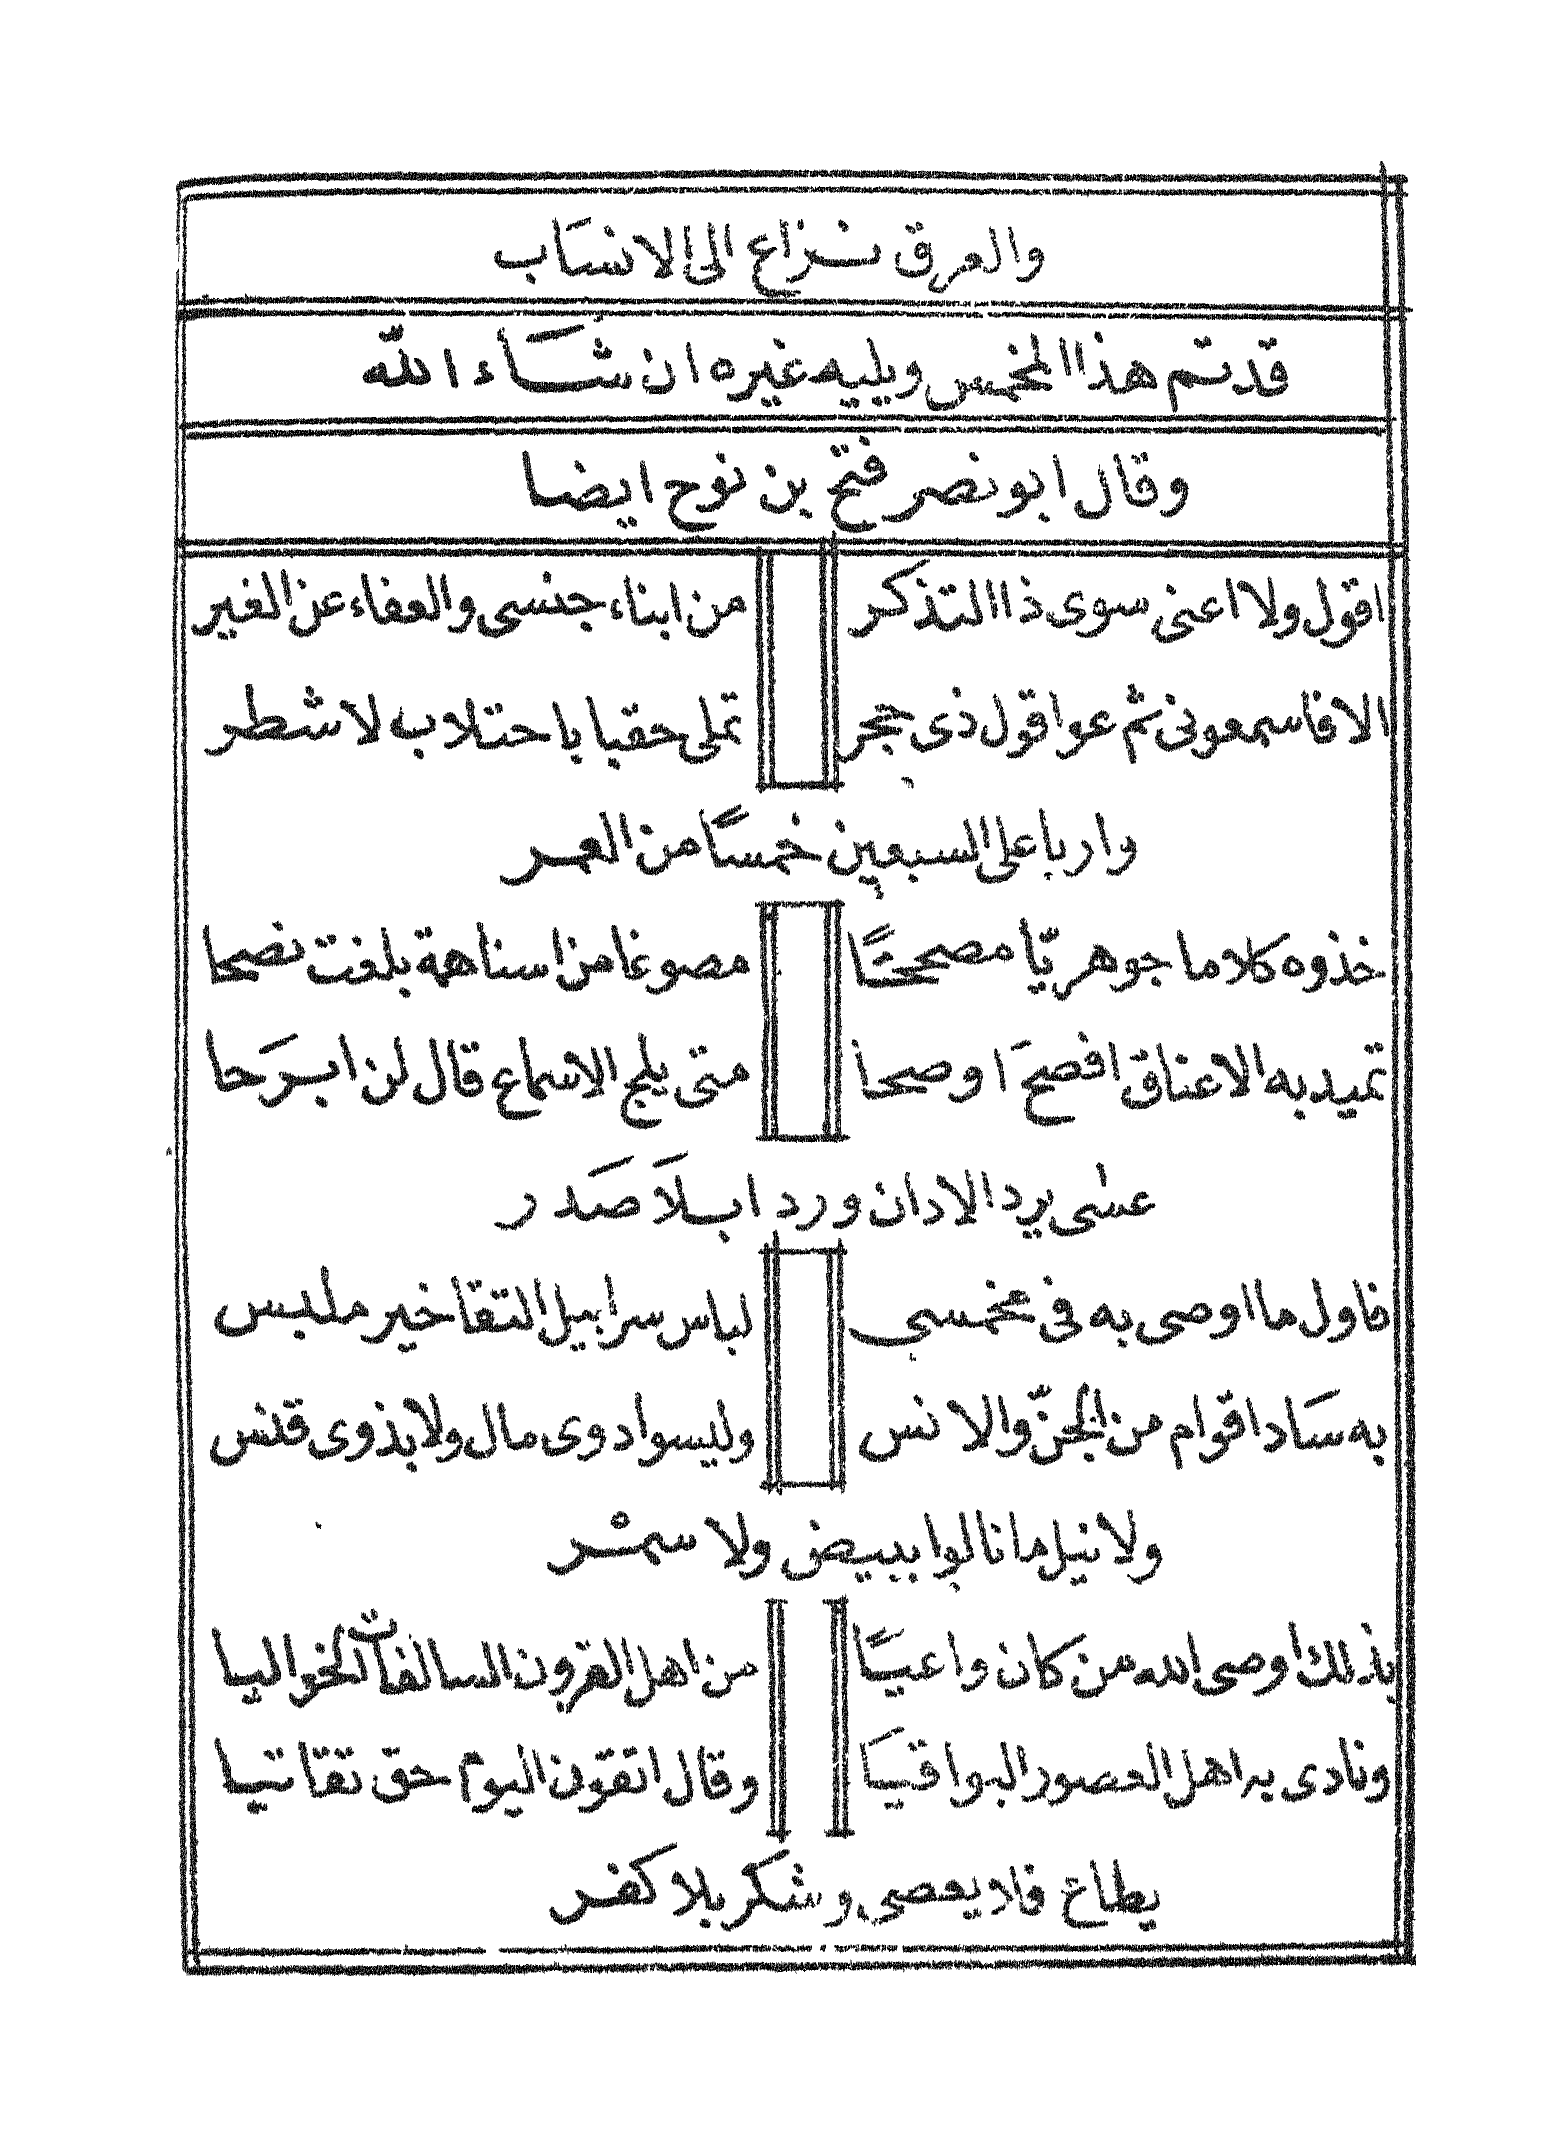 والعرق نزاع الى الانسَاب
قد تم هذا المخمس ويليه غيره ان شَاء الله
وقال ابو نصر فتح بن نوح ايضا
اقول ولا اعنى سوى ذا التذكر من ابناء جنسى والعفاء عن الغير
الا فاسمعونى ثم عوا قول ذى حجر تملى حقبا با حتلاب لا شطر
واربا على السبعين خمسًا من العمر
خذوه كلاما جوهريّا مصححًا مصوغا من اسناهة بلغت نصحا
تميد به الاعناق افصحَ اوصحا متى يلج الاسماع قال لن ابرَحا
عسٰى يرد الادان وردا بلَا صَدر
فاول ما اوصى به فى مخمسي لباس سرابيل التقا خير ملبس
به سَاد اقوام من الجنّ والانس وليسوا دوى مال ولا بذوى قنس
ولا نيل ما نالوا ببيض ولا سمْر
بذلك اوصى الله من كان واعيًا من اهل القرون السالفات الخواليا
ونادى به اهل العصور البواقيَا وقال اتقون اليوم حق تقاتيا
يطاع فلا يعصى وشكر بلا كفر